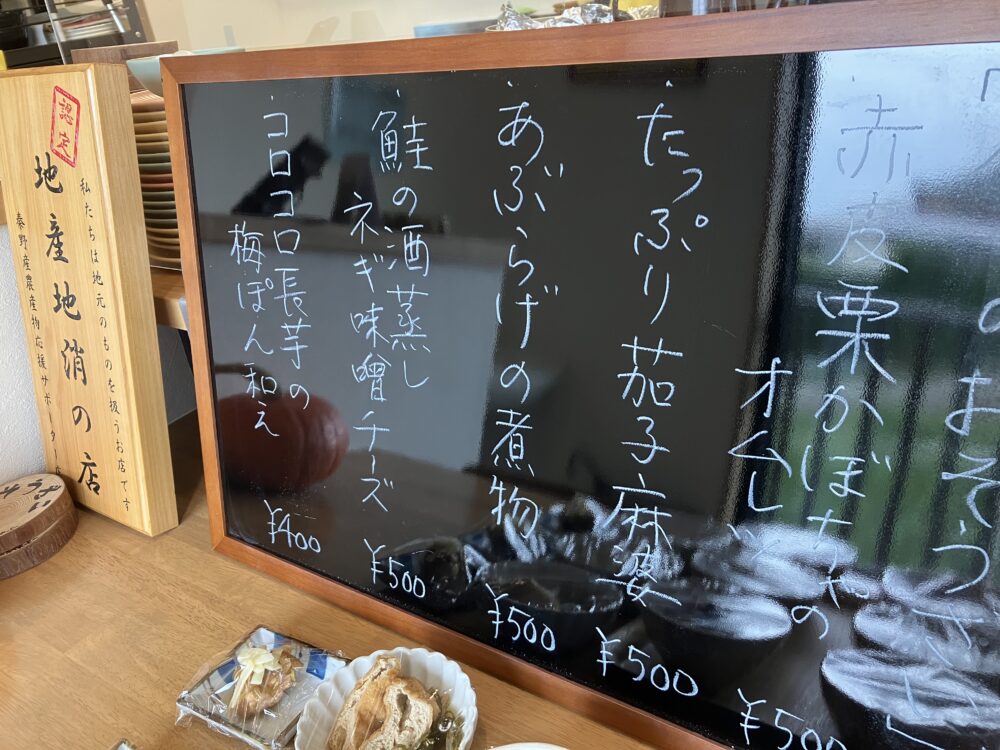 のおそうざい
・赤皮栗かぼちゃの
オムレツ
¥500
・たっぷり茄子麻婆
¥500
・あぶらげの煮物
¥500
・鮭の酒蒸し
ネギ味噌チーズ
¥500
・コロコロ長芋の
梅ぽん和え
¥400
認定
私たちは地元のものを扱うお店です
地産地消の店
秦野産農産物応援サポーター店